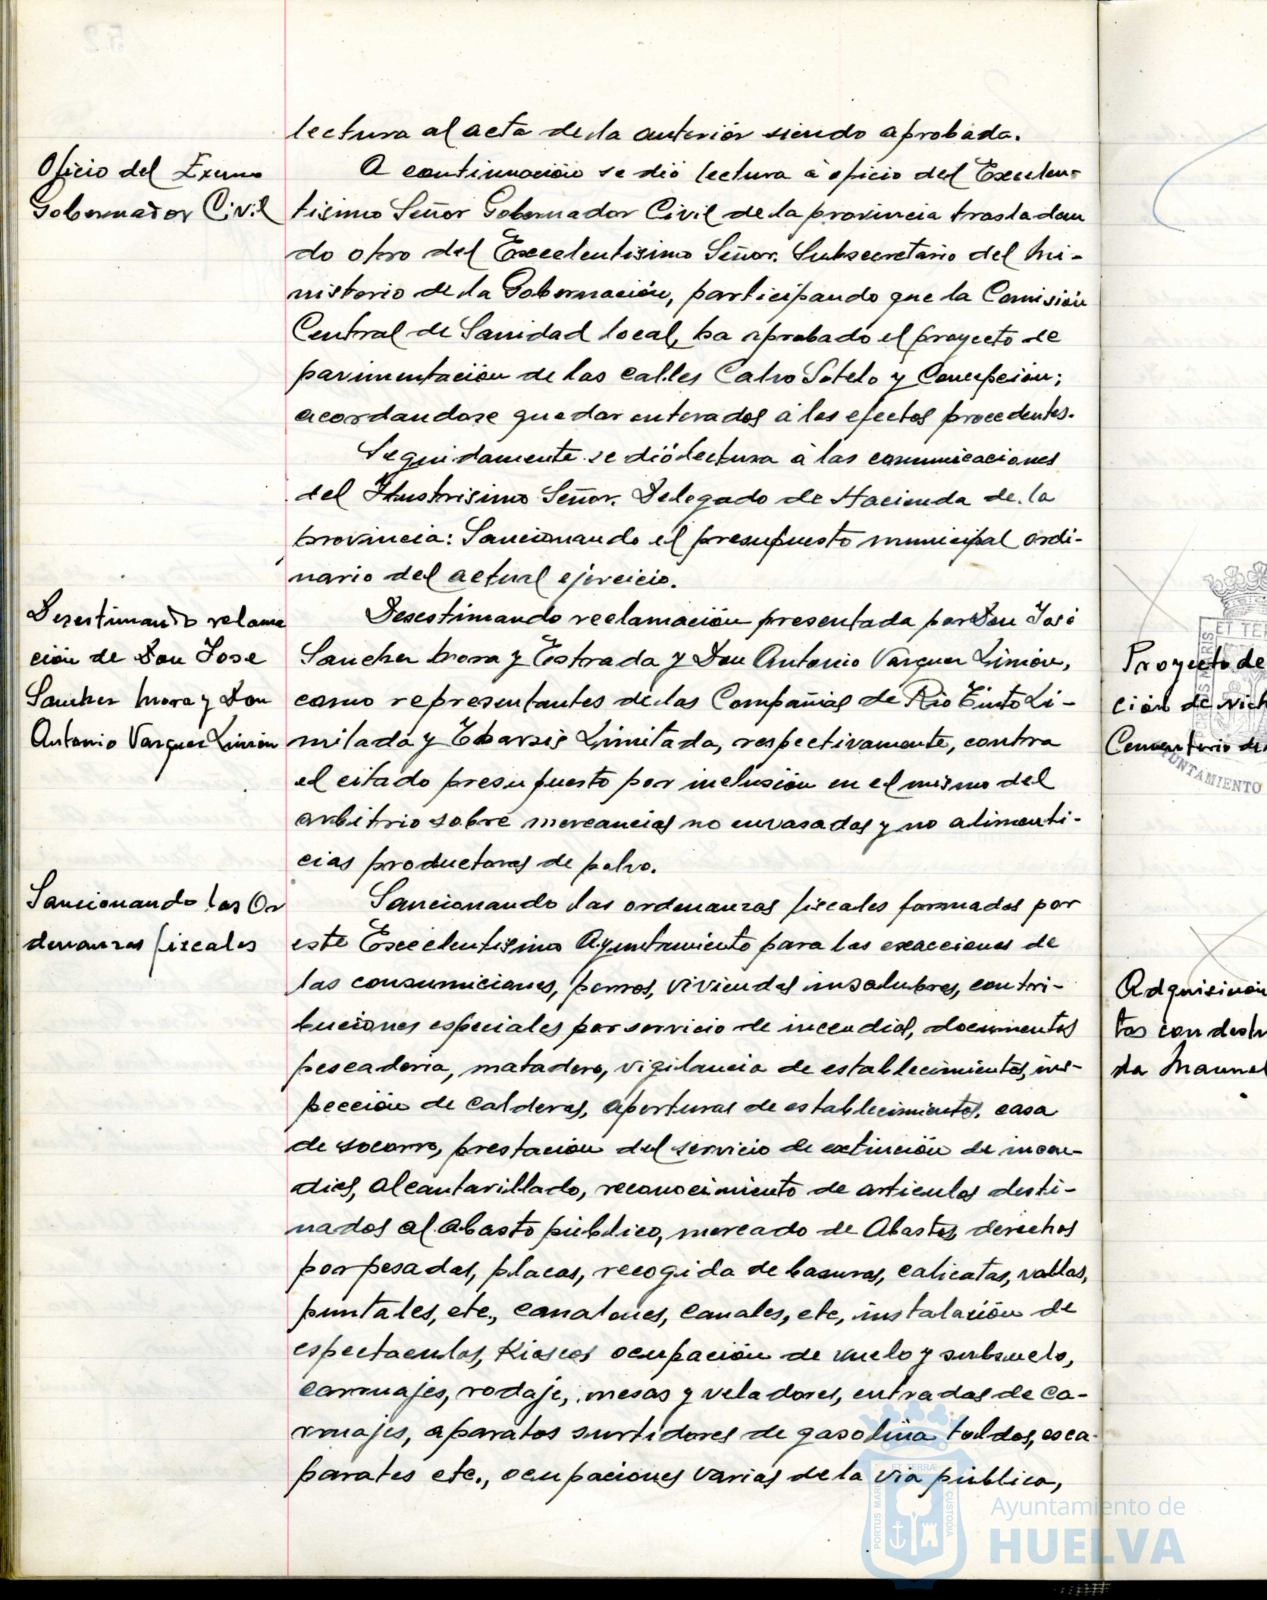 lectura al acta de la anterior siendo aprobada.
Oficio del Excmo
Gobernador Civil
A continuación se dió lectura á oficio del Excelen-
tisimo Señor Gobernador Civil de la provincia trasladan
do otro del Excelentisimo Señor. Subsecretario del Mi-
nisterio de la Gobernación, participando que la Comisión
Central de Sanidad local, ha aprobado el proyecto de
pavimentación de las calles Calvo Sotelo y Concepción;
acordandose quedar enterados á los efectos procedentes.
Seguidamente se dió lectura á las comunicaciones
del Ilustrisimo Señor. Delegado de Hacienda de la
provincia: Sancionando el presupuesto municipal ordi-
nario del actual ejercicio.
Desestimando reclama
ción de Don Jose
Sanchez Mora y Don
Antonio Vazquez Limón
Desestimando reclamación presentada por Don José
Sanchez Mora y Estrada y Don Antonio Vazquez Limón,
como representantes de las Compañias de Rio Tinto Li-
mitada y Tharsis Limitada, respectivamente, contra
el citado presupuesto por inclusión en el mismo del
arbitrio sobre mercancias no envasadas y no alimenti-
cias productoras de polvo.
Sancionando las Or
denanzas fiscales
Sancionando las ordenanzas fiscales formadas por
este Excelentisimo Ayuntamiento para las exacciones de
las consumiciones, perros, viviendas insalubres, contri-
buciones especiales por servicio de incendios, documentos
pescaderia, matadero, vigilancia de establecimientos, ins-
pección de calderas, aperturas de establecimientos, casa
de socorro, prestación del servicio de extinción de incen-
dios, alcantarillado, reconocimiento de articulos desti-
nados al abasto público, mercado de Abastos, derechos
por pesadas, placas, recogida de basuras, calicatas, vallas,
puntales, etc., canalones, canales, etc, instalación de
espectaculos, Kioscos ocupación de vuelo y subsuelo,
carruajes, rodaje, mesas y veladores, entradas de ca-
rruajes, aparatos surtidores de gasolina toldos, esca-
parates etc., ocupaciones varias de la via pública,
Proyecto de
ción de nich
Cementerio de
Adquisición
tos con dest
da Manuel
ET TERRÆ
AYUNTAMIENTO
PORTUS MARIS ET TERRÆ CUSTODIA
Ayuntamiento de
HUELVA